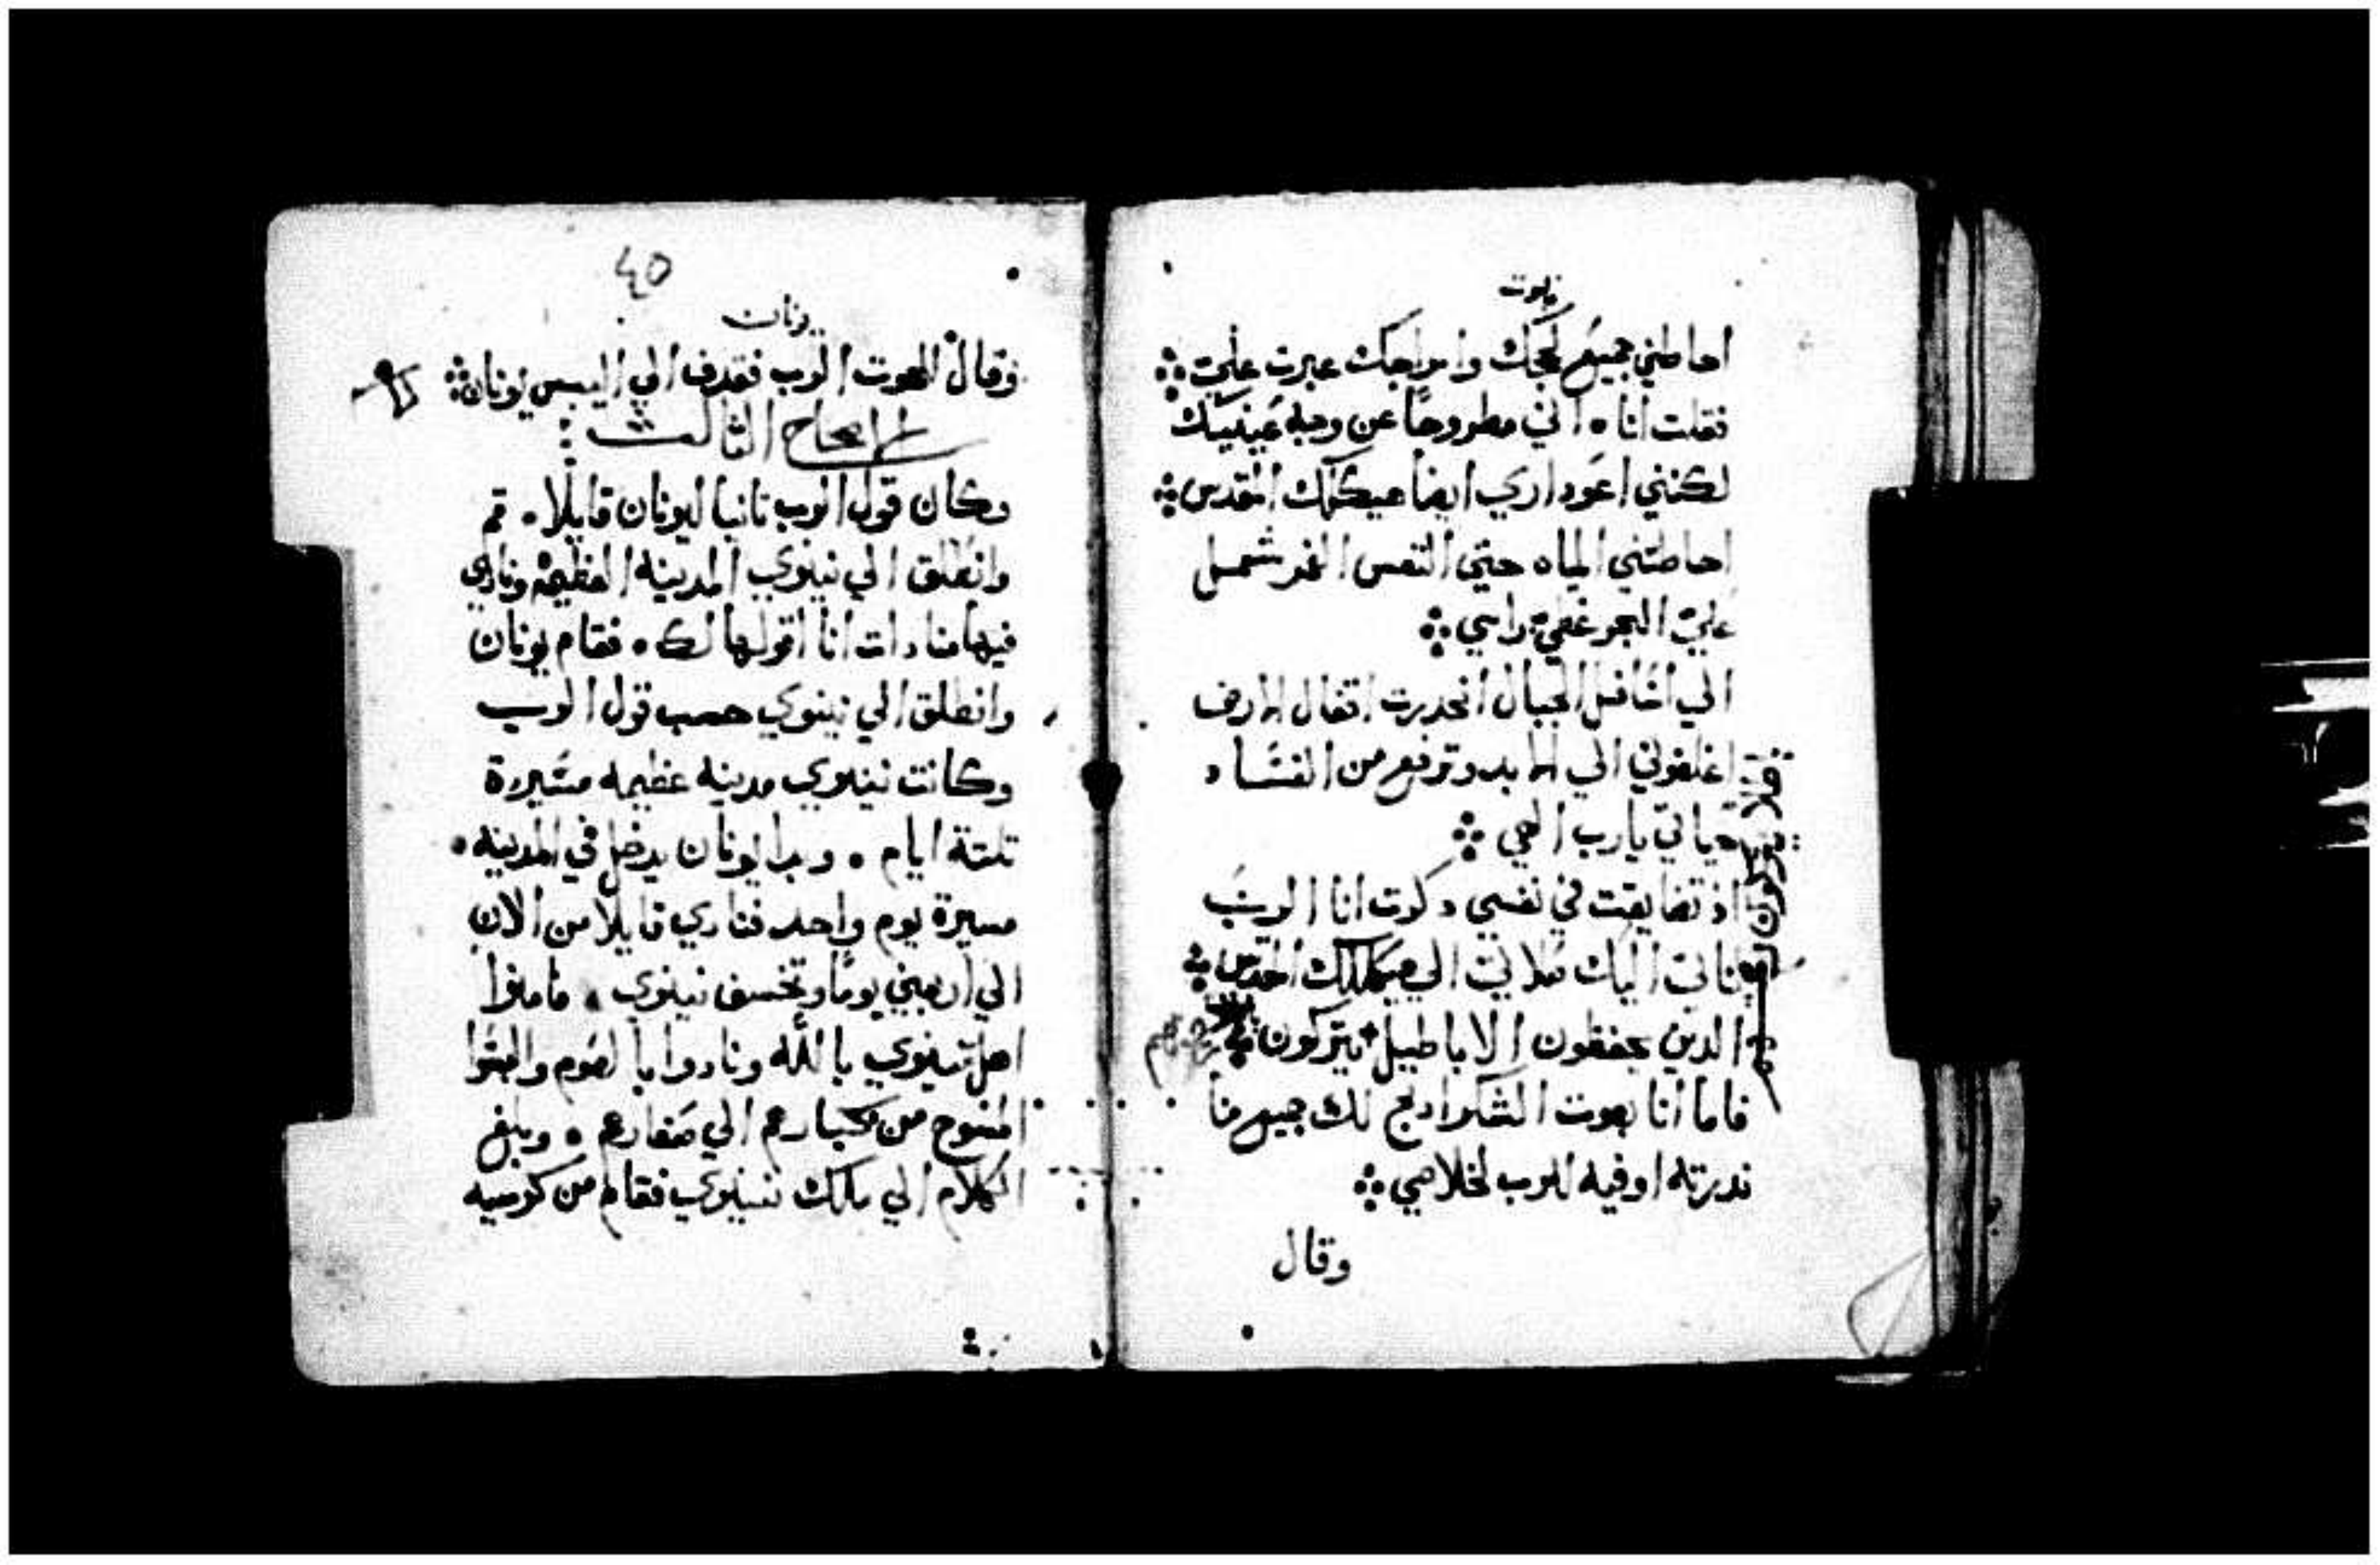 نبوت
احاطني جميع لججك وامواجك عبرت علي
فقلت انا ٠ اني مطروحاً عن وجه عينيك
لكنني اعود اري ايضاً هيكلك المقدس
احاطتني المياه حتي النفس الغمر شمل
علي البحر غطي راسي
الي اسافل الجبال انحدرت اقفال الارض
اغلقوني الي الابد وترفع من الفساد
حياتي يارب الهي
اذ تضايقت في نفسي ذكرت انا الرب
تاتي اليك صلاتي الي هيكلك المقدس
الذين يحفظون الاباطيل يتركون
فاما انا بصوت الشكر اذبح لك جميع ما
نذرته اوفيه للرب لخلاصي
وقال
٤٥
يونان
وقال للحوت الرب فقذف الي اليبس يونان
الاصحاح الثالث
وكان قول الرب ثانيا ليونان قايلا ٠ قم
وانطلق الي نينوي المدينه العظيمه ونادي
فيها مناداة انا اقولها لك ٠ فقام يونان
وانطلق الي نينوي حسب قول الرب
وكانت نينوي مدينه عظيمه مسيرة
تلتة ايام ٠ وبدا يونان يدخل في المدينه ٠
مسيرة يوم واحد فنادي قايلا من الان
الي اربعين يوماً وتخسف نينوي ٠ فامنوا
اهل نينوي بالله ونادوا بالصوم والبسوا
المسوح من كبارهم الي صغارهم ٠ وبلغ
الكلام الي ملك نينوي فقام من كرسيه